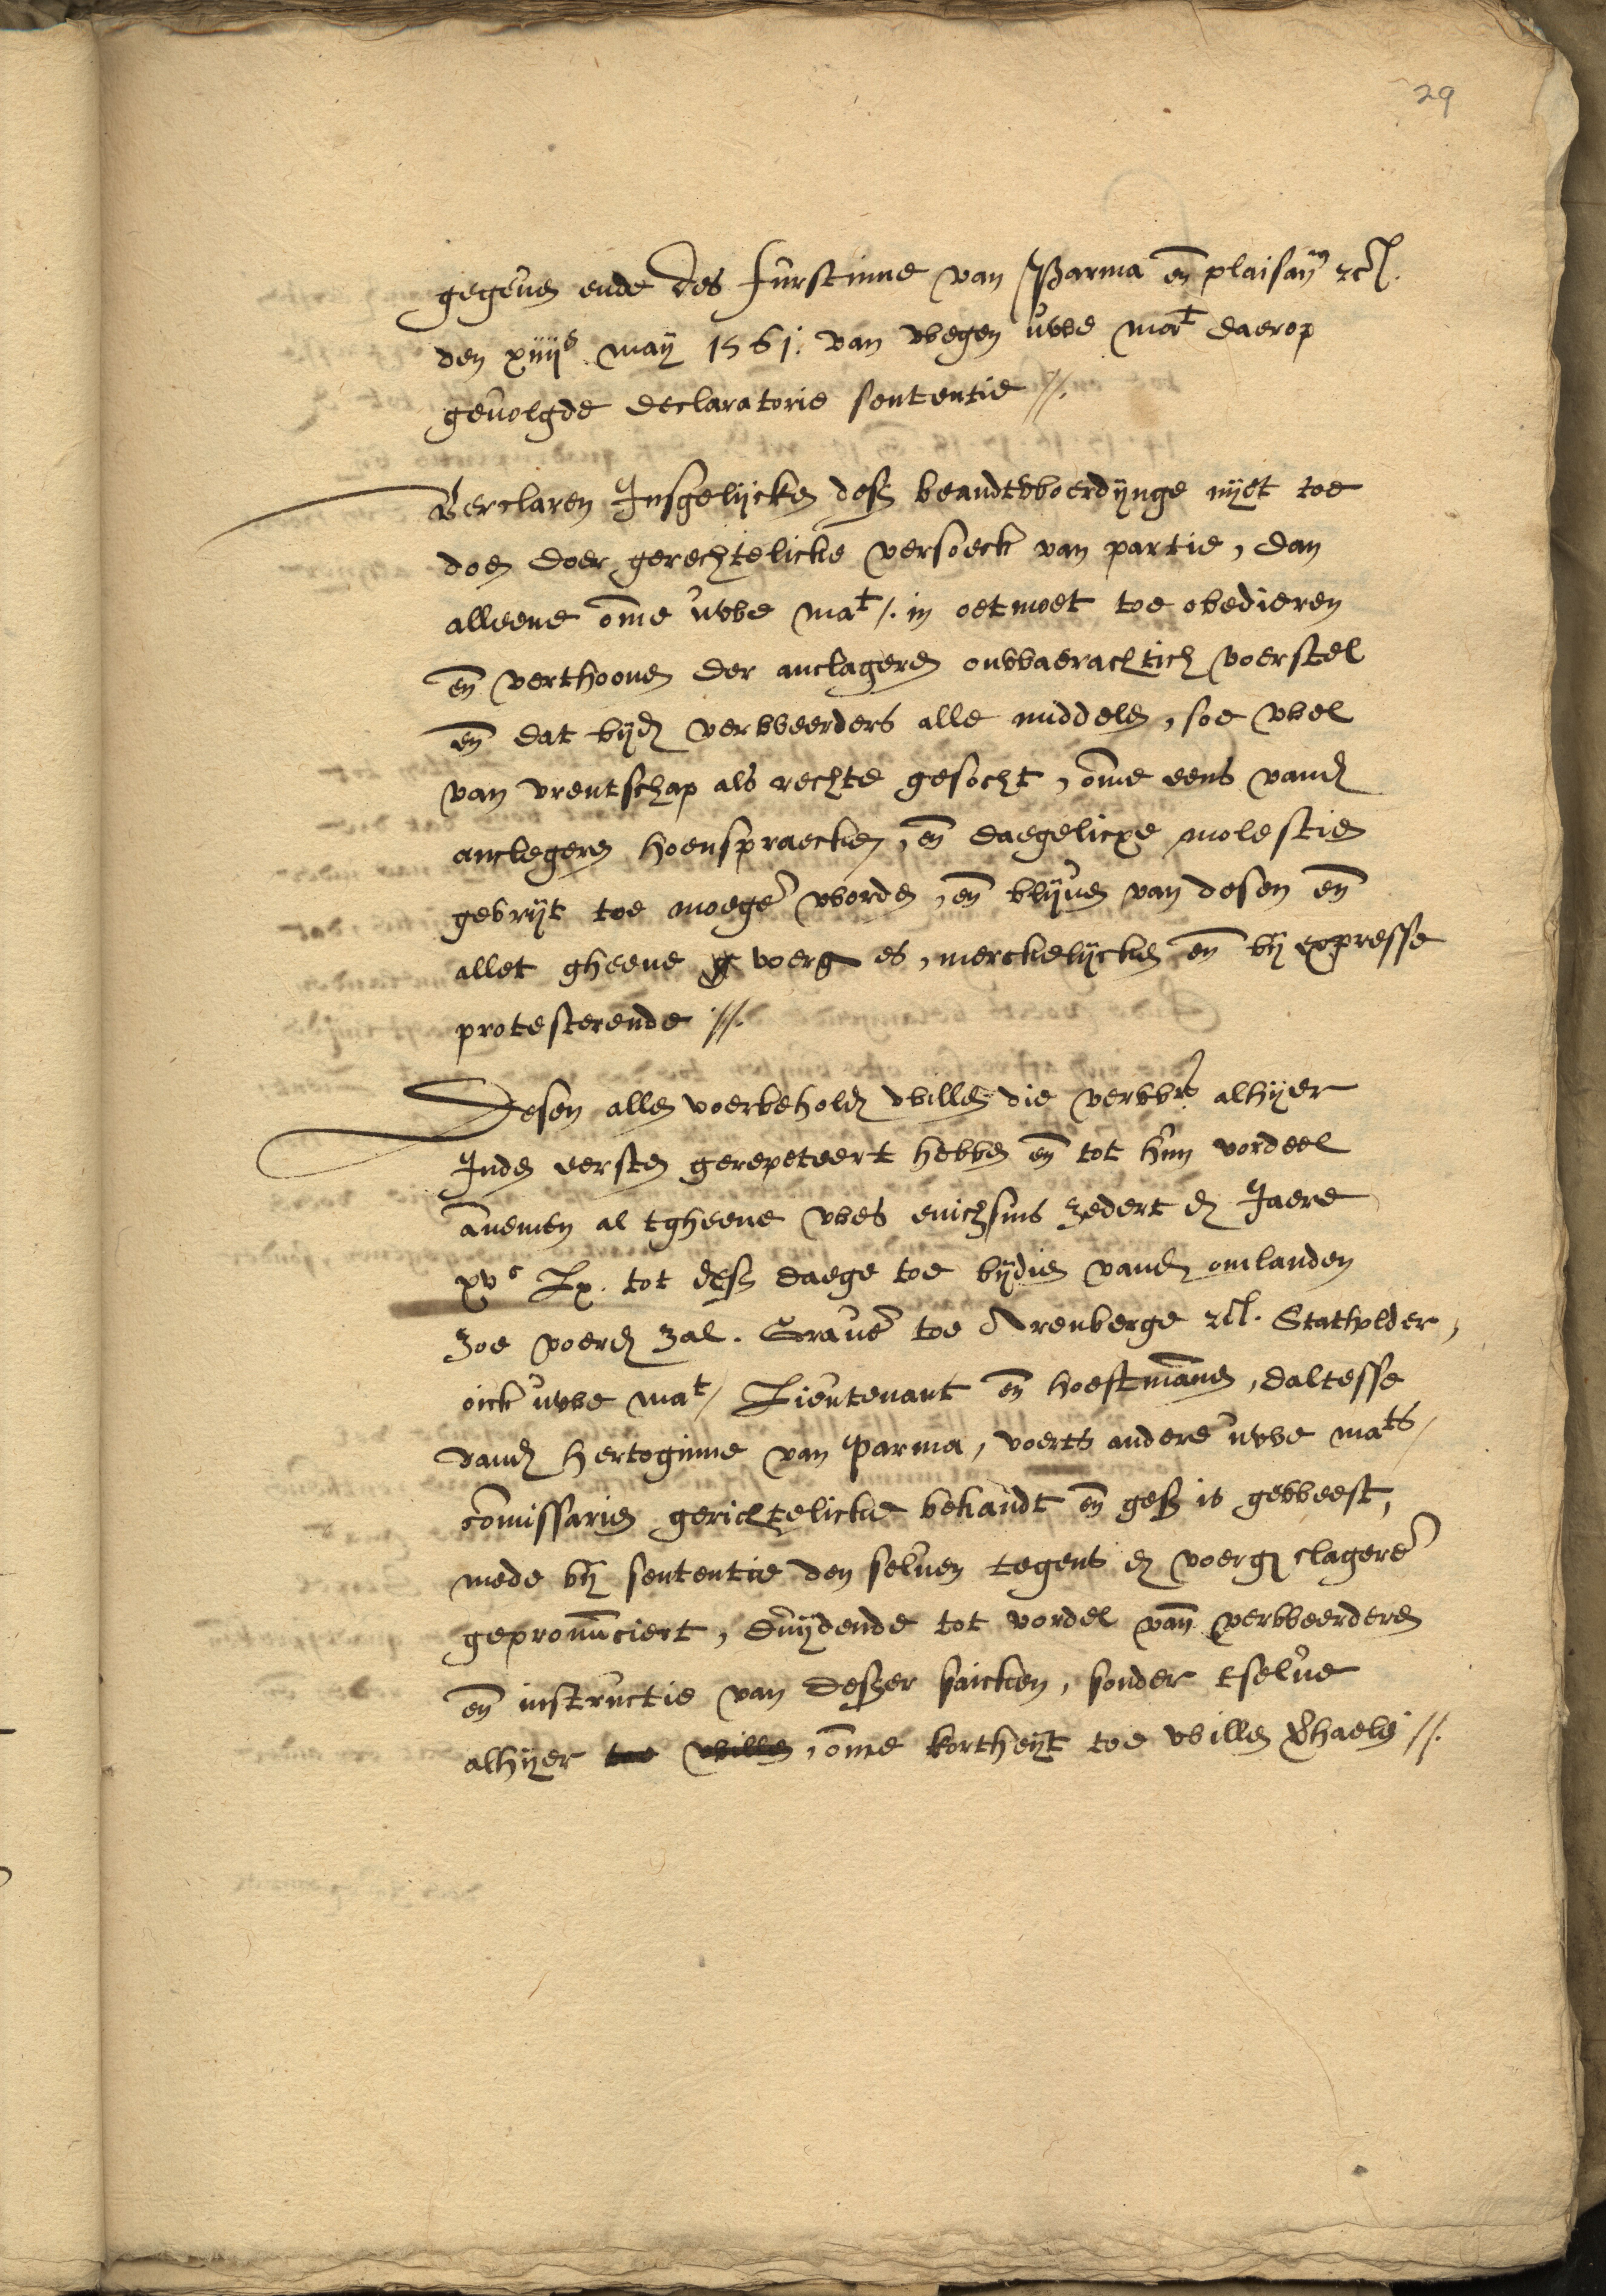 29
gegeven ende des furstinne van Parma en̄ plaisan̄ꝰ ⁊c̃.
den xiiijᵉ may 1561. van wegen uwe maᵗ daerop
gevolgde declaratorie sententie //.
Verclaren Insgelijcken desz beandtwoerdijnge nijet toe
doen doer gerechtelicke versoeck van partie, dan
alleene om̄e uwe maᵗ/. in oetmoet toe obedieren
en̄ verthoonen der anclageren onwaerachtich voerstel
en̄ dat bijd verweerders alle middelen, soe wel
van vrentschap als rechte gesocht, om̄e eens vand
anclegeren hoenspraecken, en̄ daegelicxe molestien
gevrijt toe moegē worden, en̄ blijven van desen en̄
allet gheene voerg es, merckelijcken en̄ bij expresse
protesterende //.
Desen allen voerbehold willen die verwrs alhijer
Inden eersten gerepeteert hebben en̄ tot hun vordeel
an̄emen al tgheene wes enichsins zedert d Jaere
xvᶜ Lx. tot desz daege toe bijdien vand omlanden
zoe voerd zal. Gravē toe Arenberge ⁊c̃. Statholder,
oick uwe maᵗ/ Lieutenant en̄ hoeftman̄en, daltesse
vand hertoginne van Parma, voerts andere uwe maᵗˢ/
com̄issarien gerichtelicke bekandt en̄ gesz is geweest,
mede bij sententie den selven tegens d voerg clagerē
gepronun̄ciert, duijdende tot vordel van̄ verweerderen
en̄ instructie van deszer saicken, sonder tselve
alhijer toe willen, om̄e kortheijt toe willen v̄haelē //.